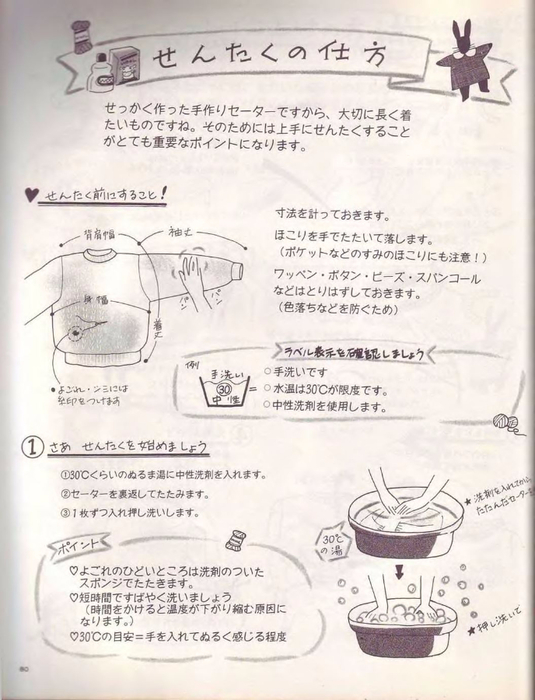 せんたくの仕方
せっかく作った手作りセーターですから、大切に長く着
たいものですね。そのためには上手にせんたくすること
がとても重要なポイントになります。
せんたく前にすること!
背肩幅
袖丈
身幅
着丈
パン
パン
●よごれ・シミには
糸印をつけます
寸法を計っておきます。
ほこりを手でたたいて落します。
(ポケットなどのすみのほこりにも注意!)
ワッペン・ボタン・ビーズ・スパンコール
などはとりはずしておきます。
(色落ちなどを防ぐため)
ラベル表示を確認しましょう
例
手洗い
30
中性
=
○手洗いです
○水温は30℃が限度です。
○中性洗剤を使用します。
① さあ せんたくを始めましょう
①30℃くらいのぬるま湯に中性洗剤を入れます。
②セーターを裏返してたたみます。
③1枚ずつ入れ押し洗いします。
ポイント
♡よごれのひどいところは洗剤のついた
スポンジでたたきます。
♡短時間ですばやく洗いましょう
(時間をかけると温度が下がり縮む原因に
なります。)
♡30℃の目安=手を入れてぬるく感じる程度
30℃
の湯
★洗剤を入れてから、
たたんだセーターを
★押し洗いで
80